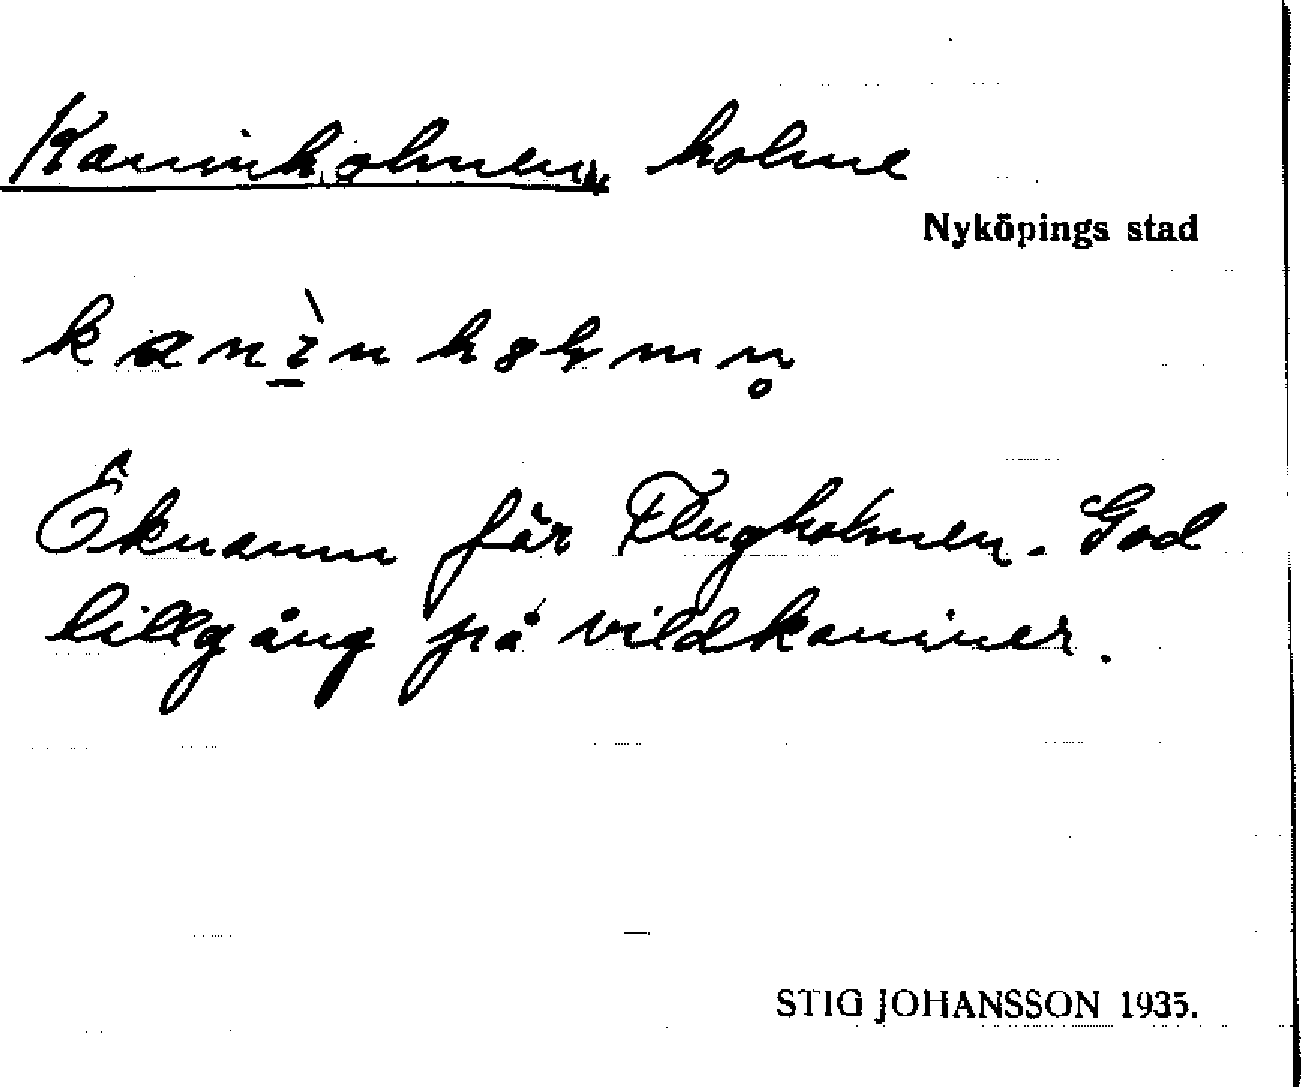 Kaninholmen, holme
Nyköpings stad
kanìnholmn̥
Öknamn för Flugholmen. God
tillgång på vildkaniner.
STIG JOHANSSON 1935.